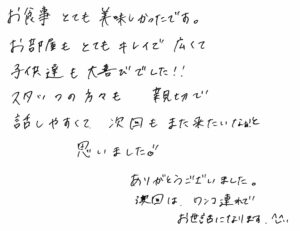 お食事 とても 美味しかったです。
お部屋も とても キレイで 広くて
子供達も 大喜びでした!!
スタッフの方々も 親切で
話しやすくて 次回も また来たいなぁと
思いました
ありがとうございました。
次回は、ワンコ連れで
お世話になります。